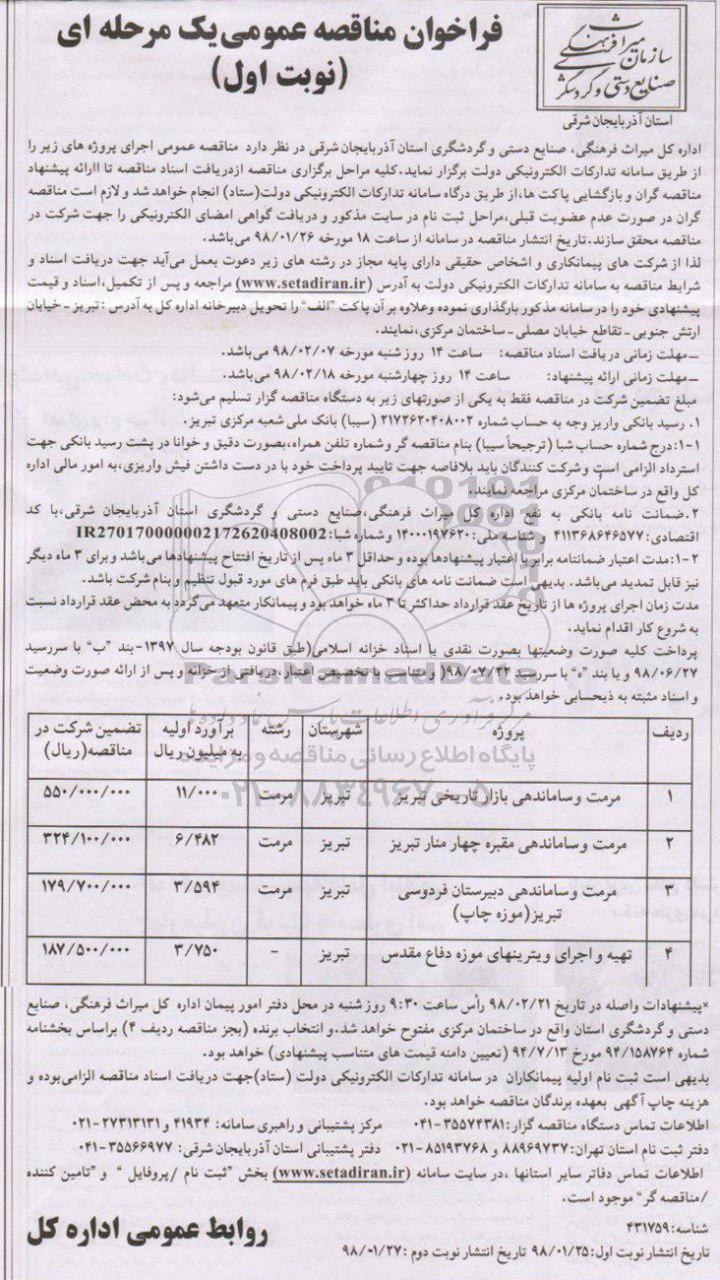 سازمان میراث فرهنگی
صنایع دستی و گردشگری
استان آذربایجان شرقی
فراخوان مناقصه عمومی یک مرحله ای
(نوبت اول)
اداره کل میراث فرهنگی، صنایع دستی و گردشگری استان آذربایجان شرقی در نظر دارد مناقصه عمومی اجرای پروژه های زیر را
از طریق سامانه تدارکات الکترونیکی دولت برگزار نماید.کلیه مراحل برگزاری مناقصه ازدریافت اسناد مناقصه تا اارائه پیشنهاد
مناقصه گران و بازگشایی پاکت ها،از طریق درگاه سامانه تدارکات الکترونیکی دولت(ستاد) انجام خواهد شد و لازم است مناقصه
گران در صورت عدم عضویت قبلی،مراحل ثبت نام در سایت مذکور و دریافت گواهی امضای الکترونیکی را جهت شرکت در
مناقصه محقق سازند.تاریخ انتشار مناقصه در سامانه از ساعت ۱۸ مورخه ۹۸/۰۱/۲۶ می‌باشد.
لذا از شرکت های پیمانکاری و اشخاص حقیقی دارای پایه مجاز در رشته های زیر دعوت بعمل می‌آید جهت دریافت اسناد و
شرایط مناقصه به سامانه تدارکات الکترونیکی دولت به آدرس (www.setadiran.ir) مراجعه و پس از تکمیل،اسناد و قیمت
پیشنهادی خود را در سامانه مذکور بارگذاری نموده وعلاوه بر آن پاکت "الف" را تحویل دبیرخانه اداره کل به آدرس : تبریز ـ خیابان
ارتش جنوبی ـ تقاطع خیابان مصلی ـ ساختمان مرکزی،نمایند.
ـ مهلت زمانی دریافت اسناد مناقصه: ساعت ۱۴ روز شنبه مورخه ۹۸/۰۲/۰۷ می‌باشد.
ـ مهلت زمانی ارائه پیشنهاد: ساعت ۱۴ روز چهارشنبه مورخه ۹۸/۰۲/۱۸ می‌باشد.
مبلغ تضمین شرکت در مناقصه فقط به یکی از صورتهای زیر به دستگاه مناقصه گزار تسلیم می‌شود:
۱. رسید بانکی واریز وجه به حساب شماره ۲۱۷۲۶۲۰۴۰۸۰۰۲ (سیبا) بانک ملی شعبه مرکزی تبریز.
۱-۱:درج شماره حساب شبا (ترجیحاً سیبا) بنام مناقصه گر و شماره تلفن همراه،بصورت دقیق و خوانا در پشت رسید بانکی جهت
استرداد الزامی است و شرکت کنندگان باید بلافاصه جهت تایید پرداخت خود با در دست داشتن فیش واریزی،به امور مالی اداره
کل واقع در ساختمان مرکزی مراجعه نمایند.
۲.ضمانت نامه بانکی به نفع اداره کل میراث فرهنگی،صنایع دستی و گردشگری استان آذربایجان شرقی،با کد
اقتصادی:۴۱۱۳۶۸۶۴۶۵۷۷ و شناسه ملی:۱۴۰۰۰۱۹۷۶۲۰ و شماره شبا:IR270170000002172620408002
۲-۱:مدت اعتبار ضمانتنامه برابر با اعتبار پیشنهادها بوده و حداقل ۳ ماه پس از تاریخ افتتاح پیشنهادها می‌باشد و برای ۳ ماه دیگر
نیز قابل تمدید می‌باشد. بدیهی است ضمانت نامه های بانکی باید طبق فرم های مورد قبول تنظیم و بنام شرکت باشد.
مدت زمان اجرای پروژه ها از تاریخ عقد قرارداد حداکثر تا ۳ ماه خواهد بود و پیمانکار متعهد می‌گردد به محض عقد قرارداد نسبت
به شروع کار اقدام نماید.
پرداخت کلیه صورت وضعیتها بصورت نقدی یا اسناد خزانه اسلامی(طبق قانون بودجه سال ۱۳۹۷-بند "ب" با سررسید
۹۸/۰۶/۲۷ و یا بند "ه" با سررسید ۹۸/۰۷/۲۳) و متناسب با تخصیص اعتبار،دریافتی از خزانه و پس از ارائه صورت وضعیت
و اسناد مثبته به ذیحسابی خواهد بود.
ParsNamadData
مرکز فرآوری اطلاعات پارس نماد داده ها
پایگاه اطلاع رسانی مناقصه و مزایده
۰۲۱-۸۸۳۴۹۶۷۰-۵
ردیف پروژه شهرستان رشته برآورد اولیه به میلیون ریال تضمین شرکت در مناقصه(ریال)
۱ مرمت و ساماندهی بازار تاریخی تبریز تبریز مرمت ۱۱/۰۰۰ ۵۵۰/۰۰۰/۰۰۰
۲ مرمت و ساماندهی مقبره چهار منار تبریز تبریز مرمت ۶/۴۸۲ ۳۲۴/۱۰۰/۰۰۰
۳ مرمت و ساماندهی دبیرستان فردوسی تبریز(موزه چاپ) تبریز مرمت ۳/۵۹۴ ۱۷۹/۷۰۰/۰۰۰
۴ تهیه و اجرای ویترینهای موزه دفاع مقدس تبریز - ۳/۷۵۰ ۱۸۷/۵۰۰/۰۰۰
×پیشنهادات واصله در تاریخ ۹۸/۰۲/۲۱ رأس ساعت ۹:۳۰ روز شنبه در محل دفتر امور پیمان اداره کل میراث فرهنگی، صنایع
دستی و گردشگری استان واقع در ساختمان مرکزی مفتوح خواهد شد.و انتخاب برنده (بجز مناقصه ردیف ۴) براساس بخشنامه
شماره ۹۴/۱۵۸۷۶۴ مورخ ۹۴/۷/۱۳ (تعیین دامنه قیمت های متناسب پیشنهادی) خواهد بود.
بدیهی است ثبت نام اولیه پیمانکاران در سامانه تدارکات الکترونیکی دولت (ستاد)جهت دریافت اسناد مناقصه الزامی‌بوده و
هزینه چاپ آگهی بعهده برندگان مناقصه خواهد بود.
اطلاعات تماس دستگاه مناقصه گزار:۳۵۵۷۴۳۸۱-۰۴۱ مرکز پشتیبانی و راهبری سامانه: ۴۱۹۳۴ و ۲۷۳۱۳۱۳۱-۰۲۱
دفتر ثبت نام استان تهران:۸۸۹۶۹۷۳۷ و ۸۵۱۹۳۷۶۸-۰۲۱ دفتر پشتیبانی استان آذربایجان شرقی: ۳۵۵۶۶۹۷۷-۰۴۱
اطلاعات تماس دفاتر سایر استانها ،در سایت سامانه (www.setadiran.ir) بخش "ثبت نام /پروفایل " و "تامین کننده
/مناقصه گر" موجود است.
شناسه:۴۳۱۷۵۹
تاریخ انتشار نوبت اول: ۹۸/۰۱/۲۵ تاریخ انتشار نوبت دوم :۹۸/۰۱/۲۷
روابط عمومی اداره کل